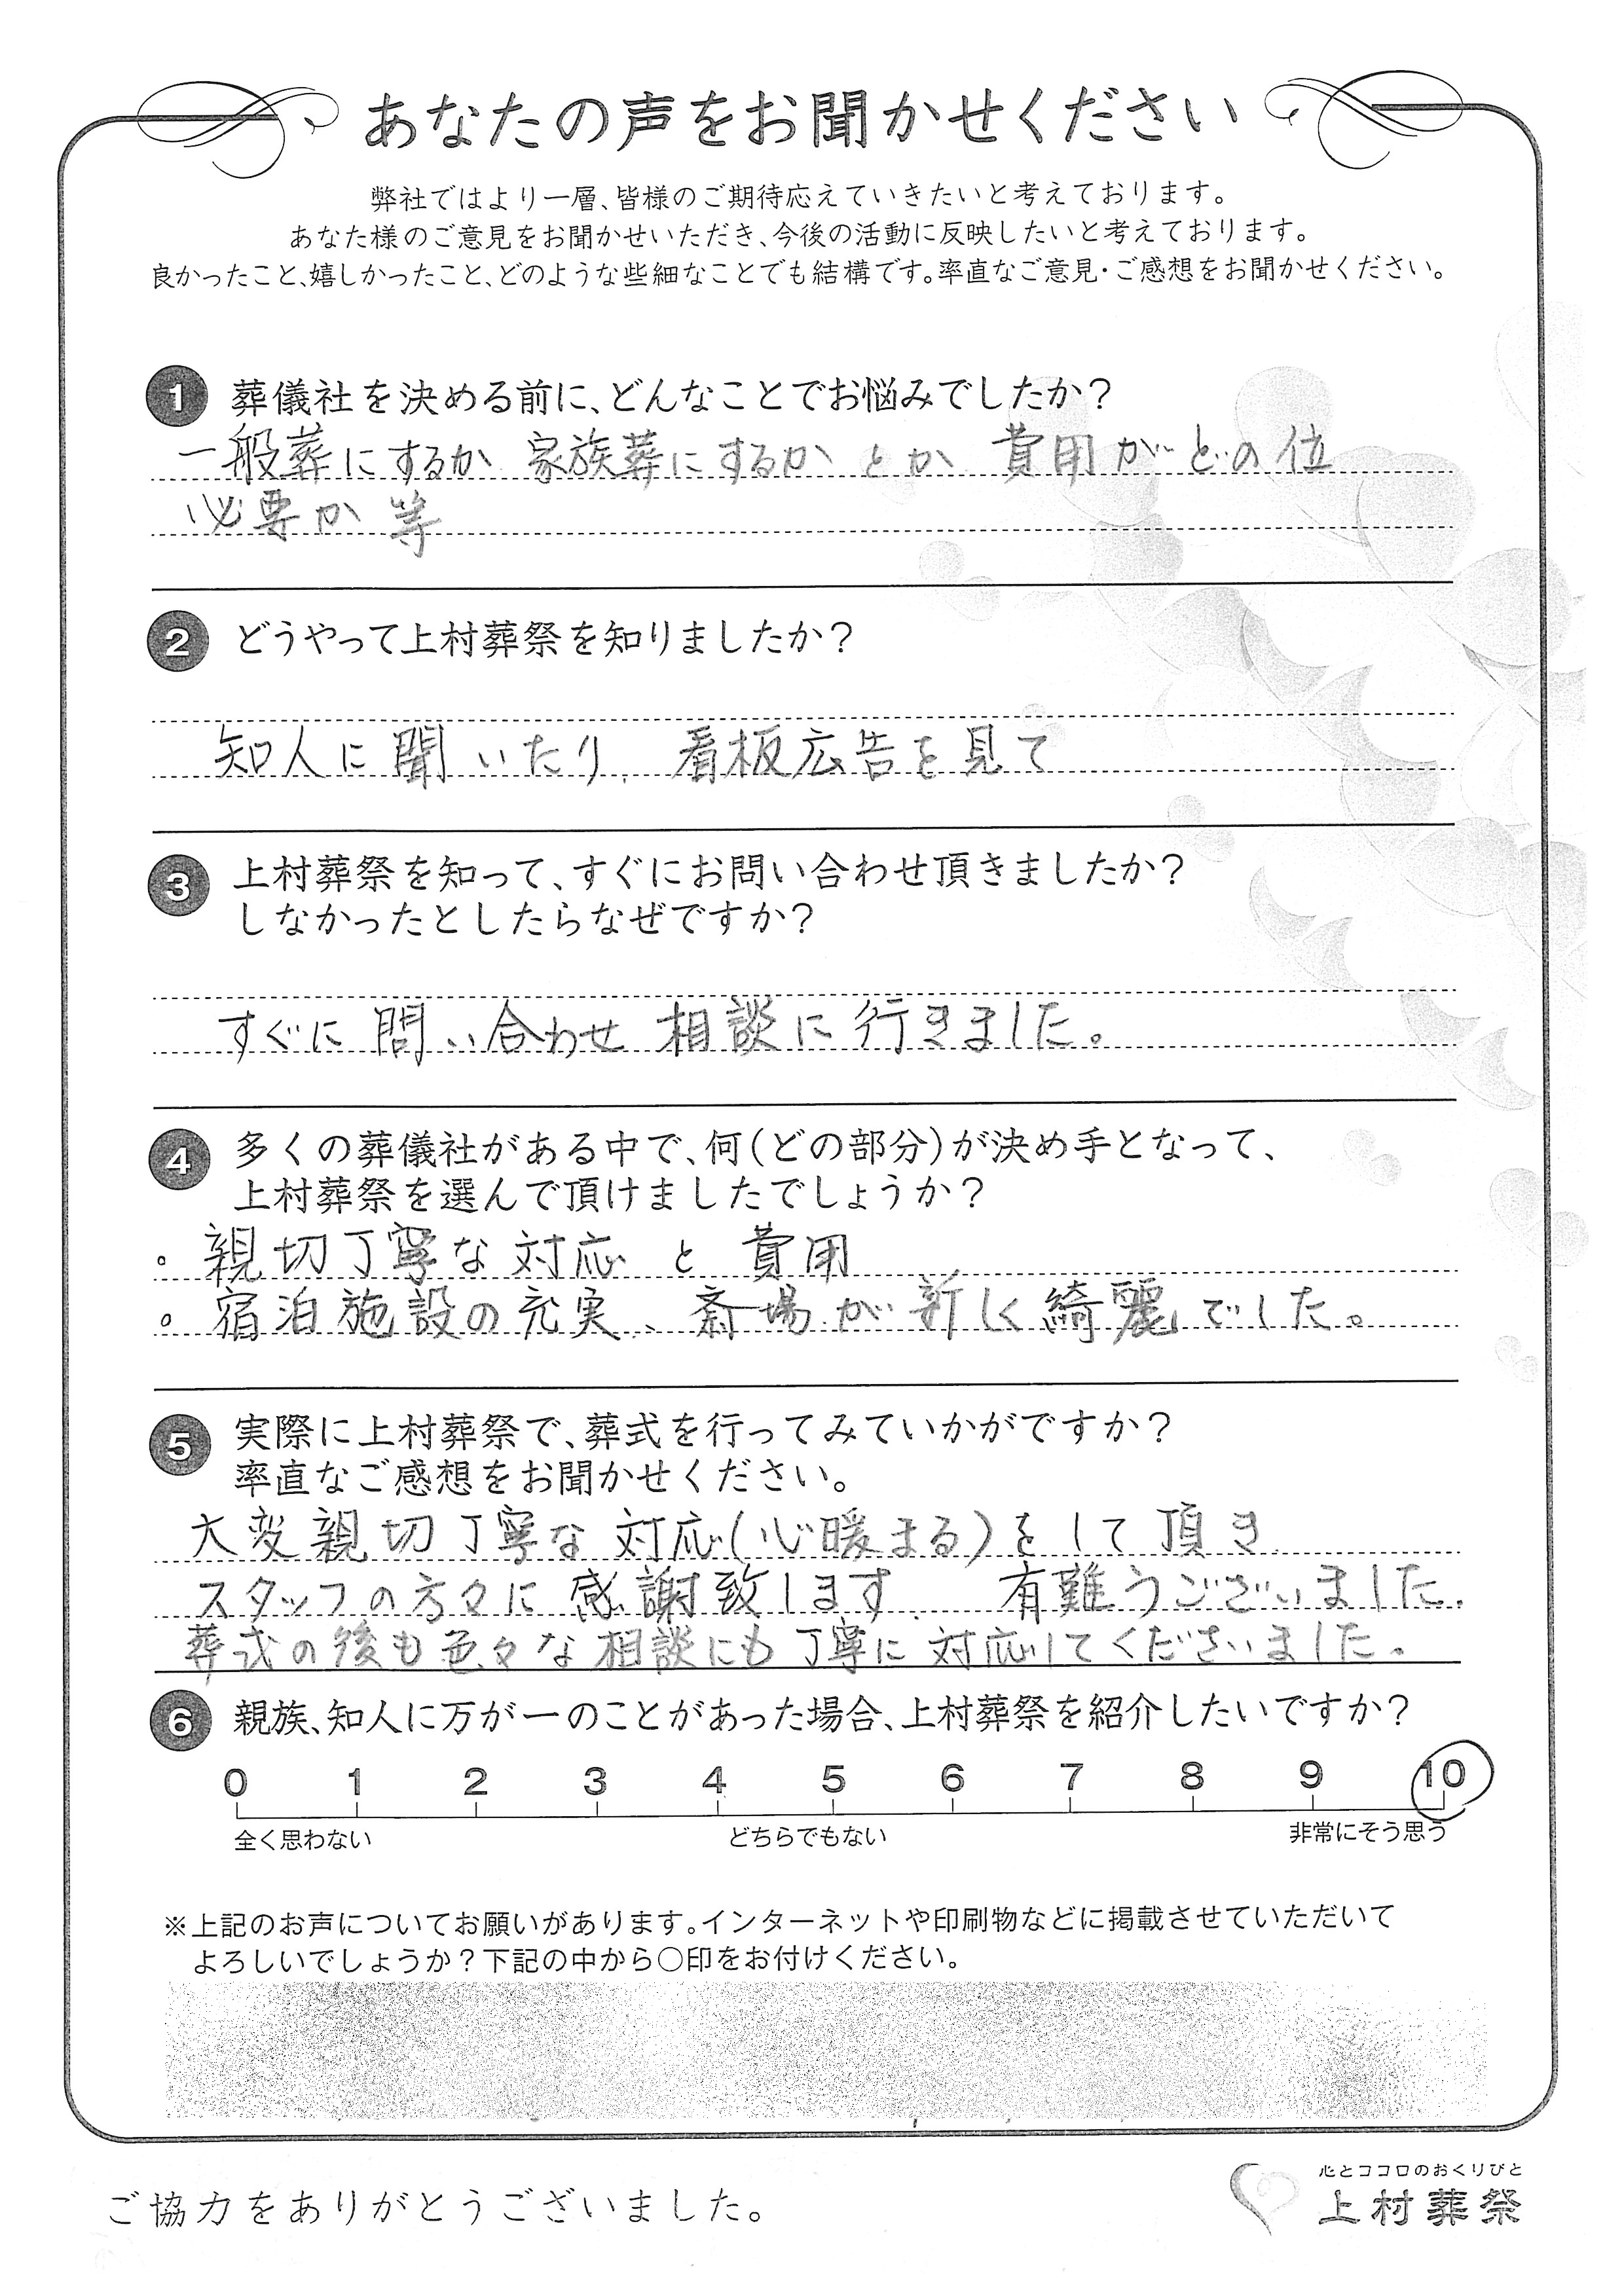 あなたの声をお聞かせください
弊社ではより一層、皆様のご期待応えていきたいと考えております。
あなた様のご意見をお聞かせいただき、今後の活動に反映したいと考えております。
良かったこと、嬉しかったこと、どのような些細なことでも結構です。率直なご意見・ご感想をお聞かせください。
1 葬儀社を決める前に、どんなことでお悩みでしたか?
一般葬にするか 家族葬にするか とか 費用がどの位
必要か 等
2 どうやって上村葬祭を知りましたか?
知人に聞いたり、看板広告を見て
3 上村葬祭を知って、すぐにお問い合わせ頂きましたか?
しなかったとしたらなぜですか?
すぐに問い合わせ 相談に行きました。
4 多くの葬儀社がある中で、何(どの部分)が決め手となって、
上村葬祭を選んで頂けましたでしょうか?
。親切丁寧な対応 と 費用
。宿泊施設の充実、斎場が新しく綺麗でした。
5 実際に上村葬祭で、葬式を行ってみていかがですか?
率直なご感想をお聞かせください。
大変親切丁寧な対応(心暖まる)をして頂き
スタッフの方々に感謝致します。 有難うございました。
葬式の後も色々な相談にも丁寧に対応してくださいました。
6 親族、知人に万が一のことがあった場合、上村葬祭を紹介したいですか?
0 1 2 3 4 5 6 7 8 9 10
全く思わない どちらでもない 非常にそう思う
※上記のお声についてお願いがあります。インターネットや印刷物などに掲載させていただいて
よろしいでしょうか?下記の中から○印をお付けください。
ご協力をありがとうございました。
心とココロのおくりびと
上村葬祭